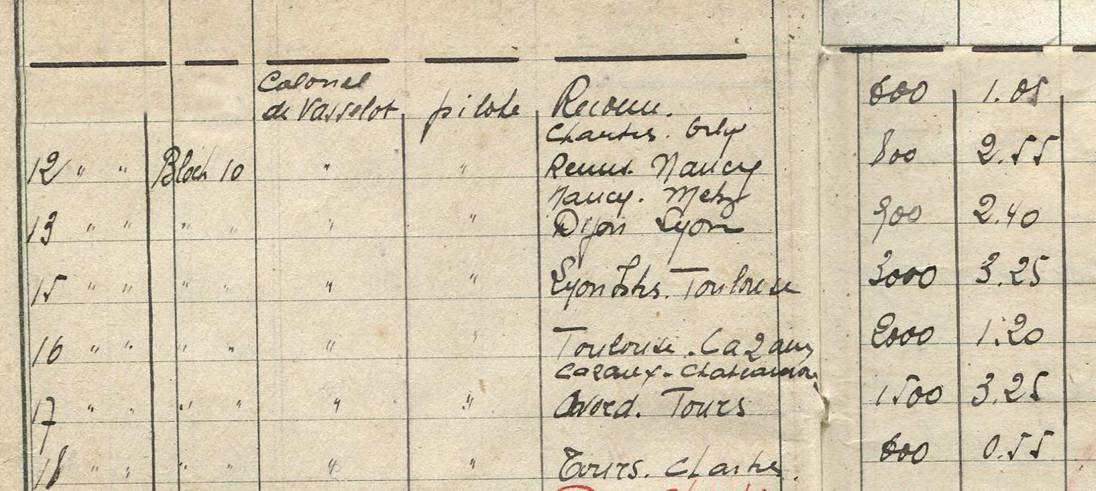 Colonel
de Vasselot pilote Reconn. 600 1.05
Chartres. Orly
12 " " Bloch 10 " " Reims. Nancy 800 2.55
Nancy. Metz
13 " " " " " " Dijon Lyon 900 2.40
15 " " " " " " Lyon Istres. Toulouse 3000 3.25
16 " " " " " " Toulouse. Cazaux 2000 1.20
Cazaux - Chateauroux
17 " " " " " " Avord. Tours 1500 3.25
18 " " " " " " Tours. Chartres. 600 0.55